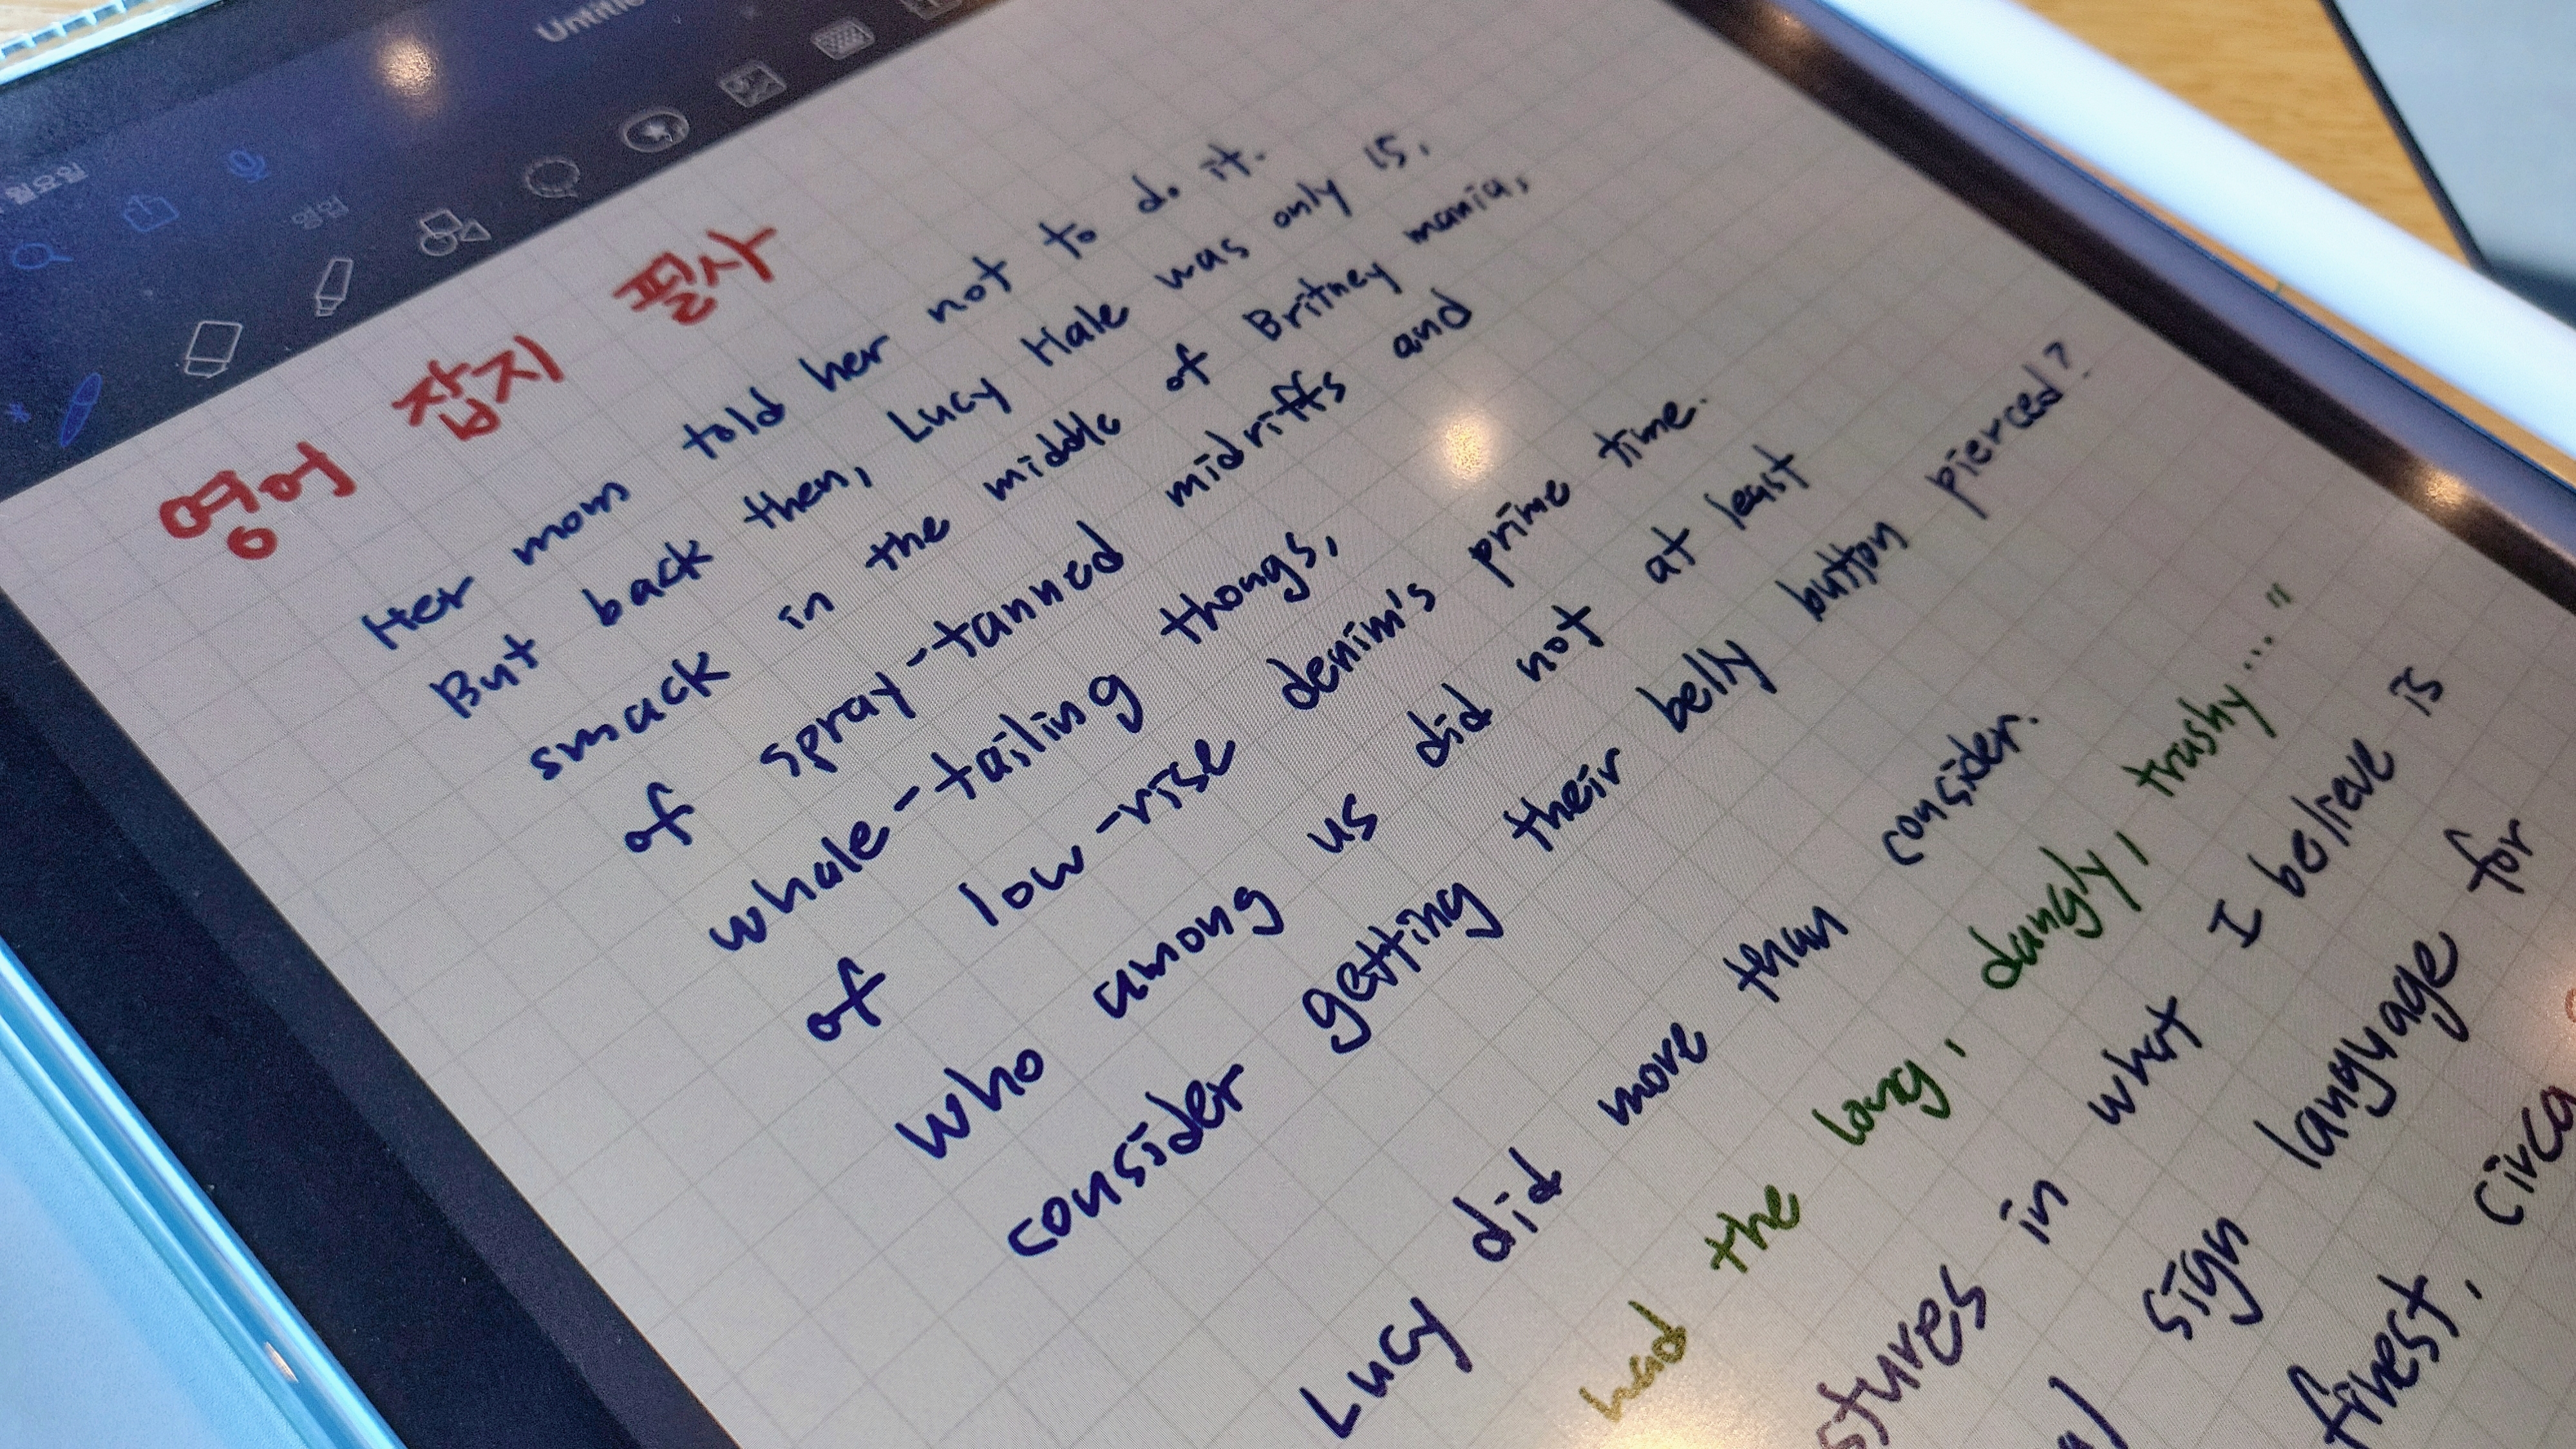 월요일
영어 잡지 필사
Her mom told her not to do it.
But back then, Lucy Hale was only 15,
smack in the middle of Britney mania,
of spray-tanned midriffs and
whale-tailing thongs,
of low-rise denim's prime time.
Who among us did not at least
consider getting their belly button pierced?
Lucy did more than consider.
had the long, dangly, trashy..."
in what I believe is
sign language for
finest, circa